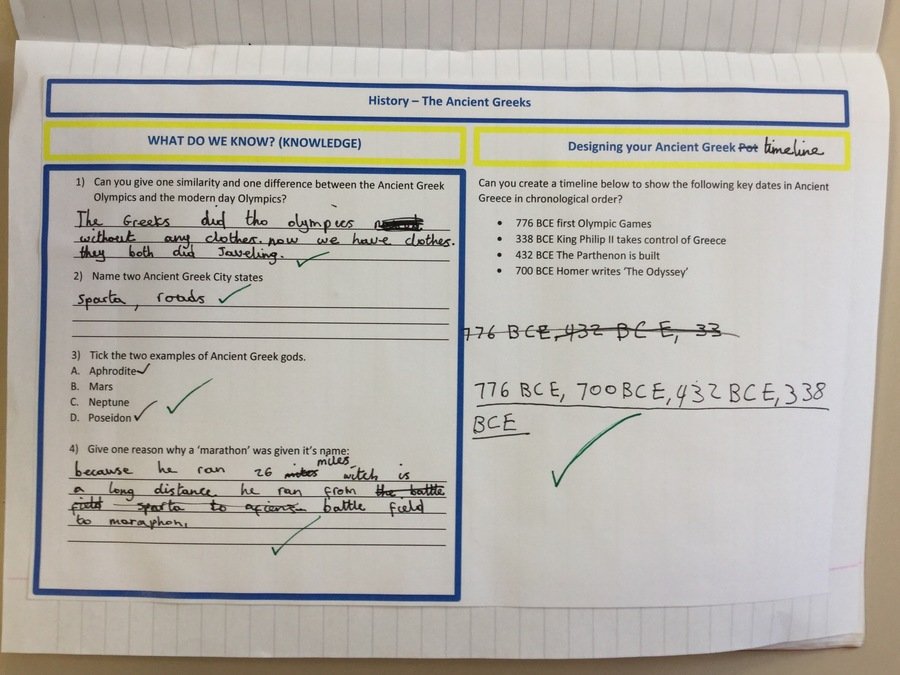 History – The Ancient Greeks
WHAT DO WE KNOW? (KNOWLEDGE)
1) Can you give one similarity and one difference between the Ancient Greek
Olympics and the modern day Olympics?
The Greeks did the olympics
without any clothes. now we have clothes.
they both did Javeling.
2) Name two Ancient Greek City states
Sparta, roads
3) Tick the two examples of Ancient Greek gods.
A. Aphrodite
B. Mars
C. Neptune
D. Poseidon
4) Give one reason why a 'marathon' was given it's name:
miles
because he ran 26 witch is
a long distance he ran from the battle
field sparta to battle field
to maraphon.
Designing your Ancient Greek Pot timeline
Can you create a timeline below to show the following key dates in Ancient
Greece in chronological order?
• 776 BCE first Olympic Games
• 338 BCE King Philip II takes control of Greece
• 432 BCE The Parthenon is built
• 700 BCE Homer writes 'The Odyssey'
776 BCE, 432 BCE, 33
776 BCE, 700 BCE, 432 BCE, 338
BCE